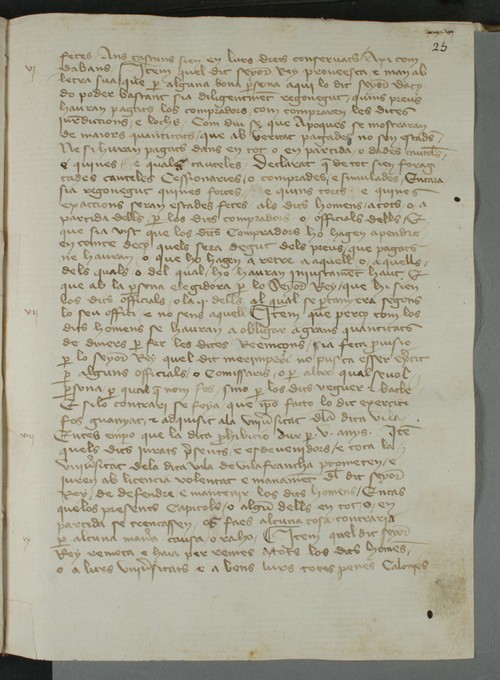 25
fetes Ans cascuns sien en lurs drets conservats Axi com
vj dabans Item quel dit seyor Rey proveesca e man ab
letra sua que per alguna bona persona aqui lo dit seyor daço
do poder bastant sia diligentment regonegut quins preus
hauran pagats los compradors com compraren les dites
juredictions e lochs Com diu se que Apoques se mostraran
de maiors quantitats que ab veritat pagades no son estades
Ne si hauran pagats dans en tot o en partida o dades cauteles
e quines e quals cauteles Declarat que de tot sien foragi
tades cauteles Cessionaries o comprades e simulades Encara
sia regonegut quines forces e quins torts e quines
exactions seran estades fetes als dits homens a tots o a
partida dells per los dits compradors o officials dells E
que sia vist que los dits Compradors ho hagen a pendre
en compte deço quels sera degut dels preus que pagats
ne hauran o que ho hagen a retre a aquell o aquells
dels quals o del qual ho hauran injustament haut E
que ab la persona elegidora per lo Seyor Rey que hi sien
los dits officials o la j dells al qual se pertanyera segons
vij lo seu offici e no sens aquell Item que perço com los
dits homens se hauran a obligar a grans quantitats
de diners per fer les dites Reemçons sia feta provisio
per lo seyor Rey quel dit mer imperi no pusca esser exercit
per alguns officials o Comissaris o per altre qualsevol
persona per qualque nom fos sino per los dits veguer e batle
E si lo contrari se feya que ipso facto lo dit exercici
fos guanyat e adquisit a la universitat dela dita vila
viij Entes empo que la dita prohibicio dur per v anys Item
quels dits jurats presents e esdevenidors e tota la
universitat dela dita vila de vilafrancha prometen e
juren ab licencia volentat e manament del dit seyor
Rey de defendre e mantenir los dits homens En cas
quels presents Capitols o algun dells en tot o en
partida se trencassen o si faes alcuna cosa contraria
ix per alcuna mana causa o raho Item quel dit seyor
Rey remeta e haia per remes a tots los dits homens
o a lurs universitats e a bens lurs totes penes Calonies